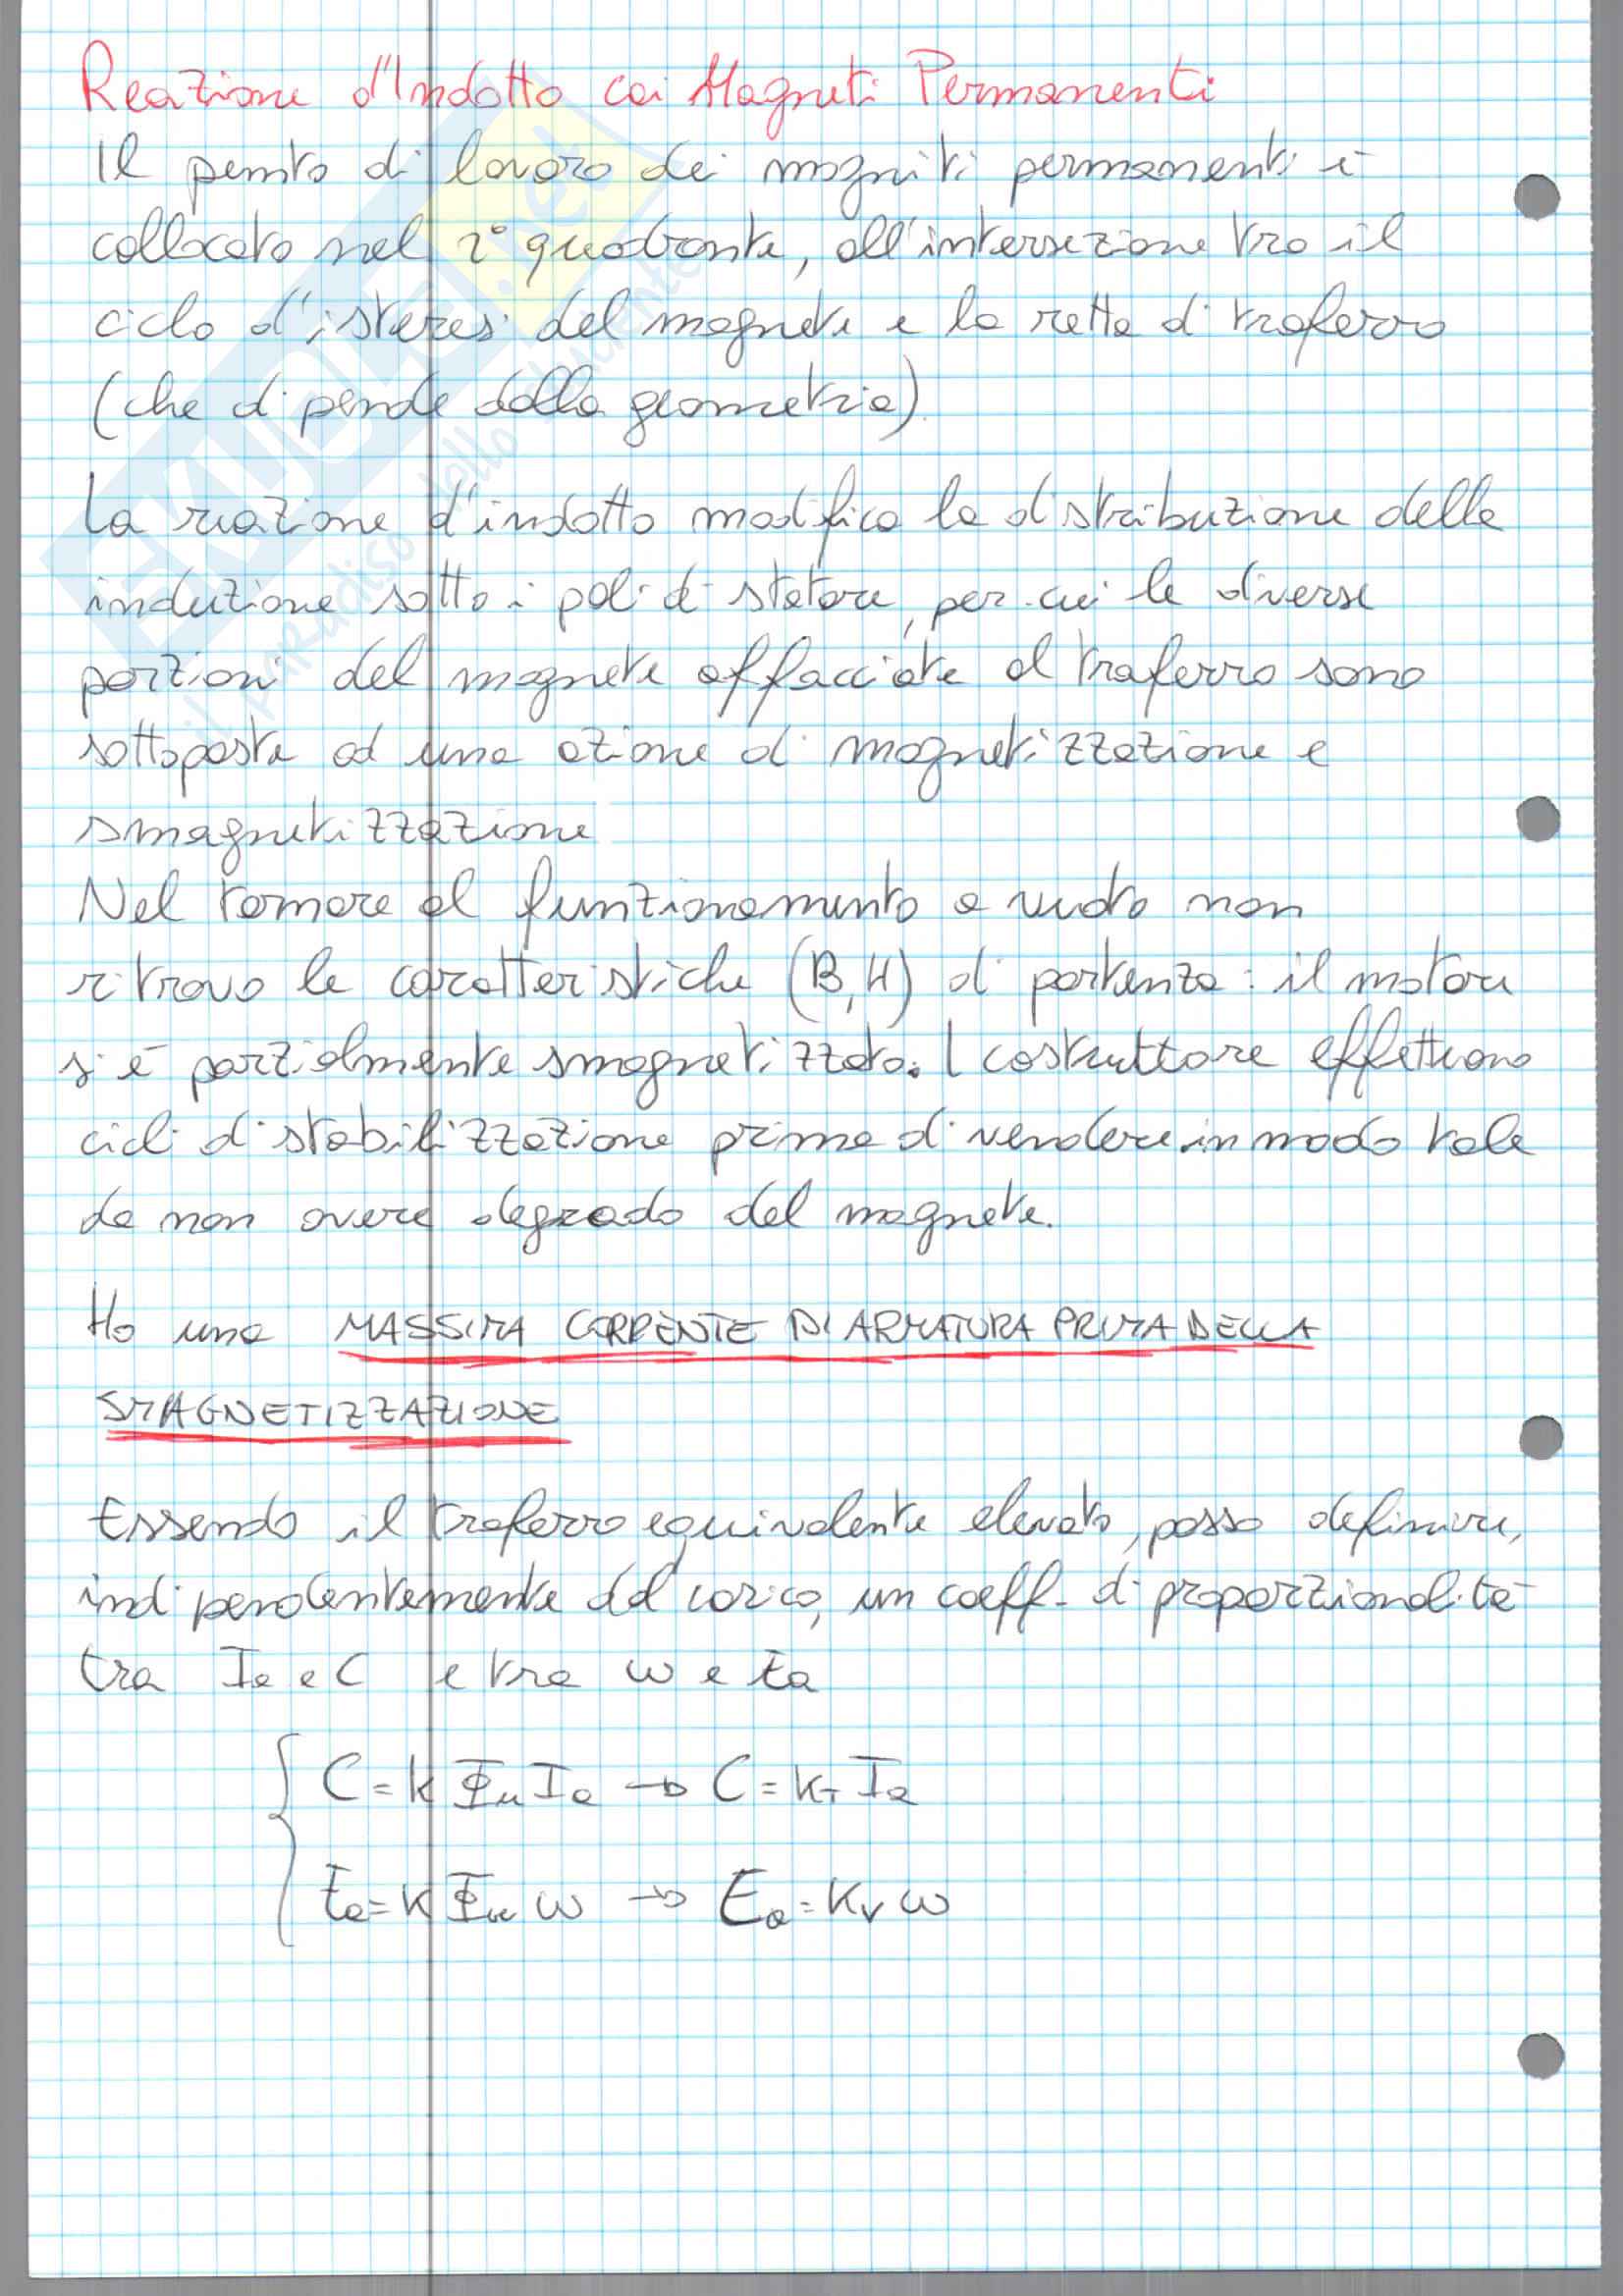 Reazione d'Indotto coi Magneti Permanenti
Il punto di lavoro dei magneti permanenti è
collocato nel 2° quadrante, all'intersezione tra il
ciclo d'isteresi del magnete e la retta di traferro
(che dipende dalla geometria)
La reazione d'indotto modifica la distribuzione della
induzione sotto i poli di statore, per cui le diverse
porzioni del magnete affacciate al traferro sono
sottoposte ad una azione di magnetizzazione e
smagnetizzazione
Nel tornare al funzionamento a vuoto non
ritrovo le caratteristiche (B,H) di partenza: il motore
si è parzialmente smagnetizzato. I costruttore effettuano
cicli di stabilizzazione prima di vendere in modo tale
da non avere degrado del magnete.
Ho una MASSIMA CORRENTE DI ARMATURA PRIMA DELLA
SMAGNETIZZAZIONE
Essendo il traferro equivalente elevato, posso definire,
indipendentemente dal carico, un coeff. di proporzionalità
tra Ia e C e tra ω e Ea
C = k Φu Ia → C = kT Ia
Ea = k Φu ω → Ea = kv ω
SKUOLA.net
il paradiso dello studente